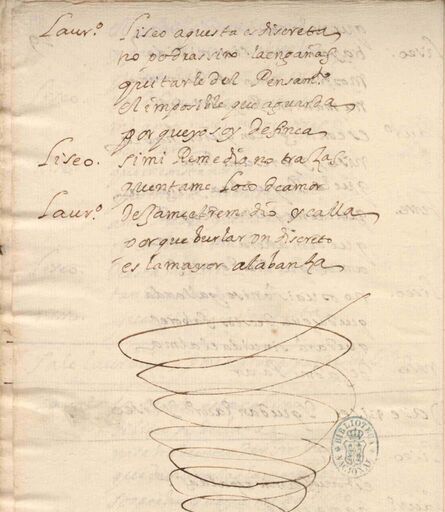 Laur.º Liseo aquesta es discreta
no podras sino la engañas
quitarle del Pensamᵗº
el imposible que aguarda
porque yo soy de finca
Liseo. si mi Remedio no trazas
cuentame loco de amor
Laur.º dexame el remedio y calla
porque burlar un discreto
es la mayor alabanza
BIBLIOTECA NACIONAL